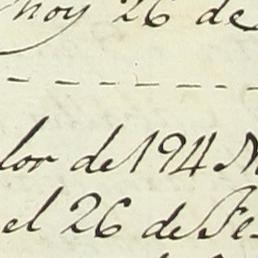 hoy 26 de
lor de 194
el 26 de Fe-